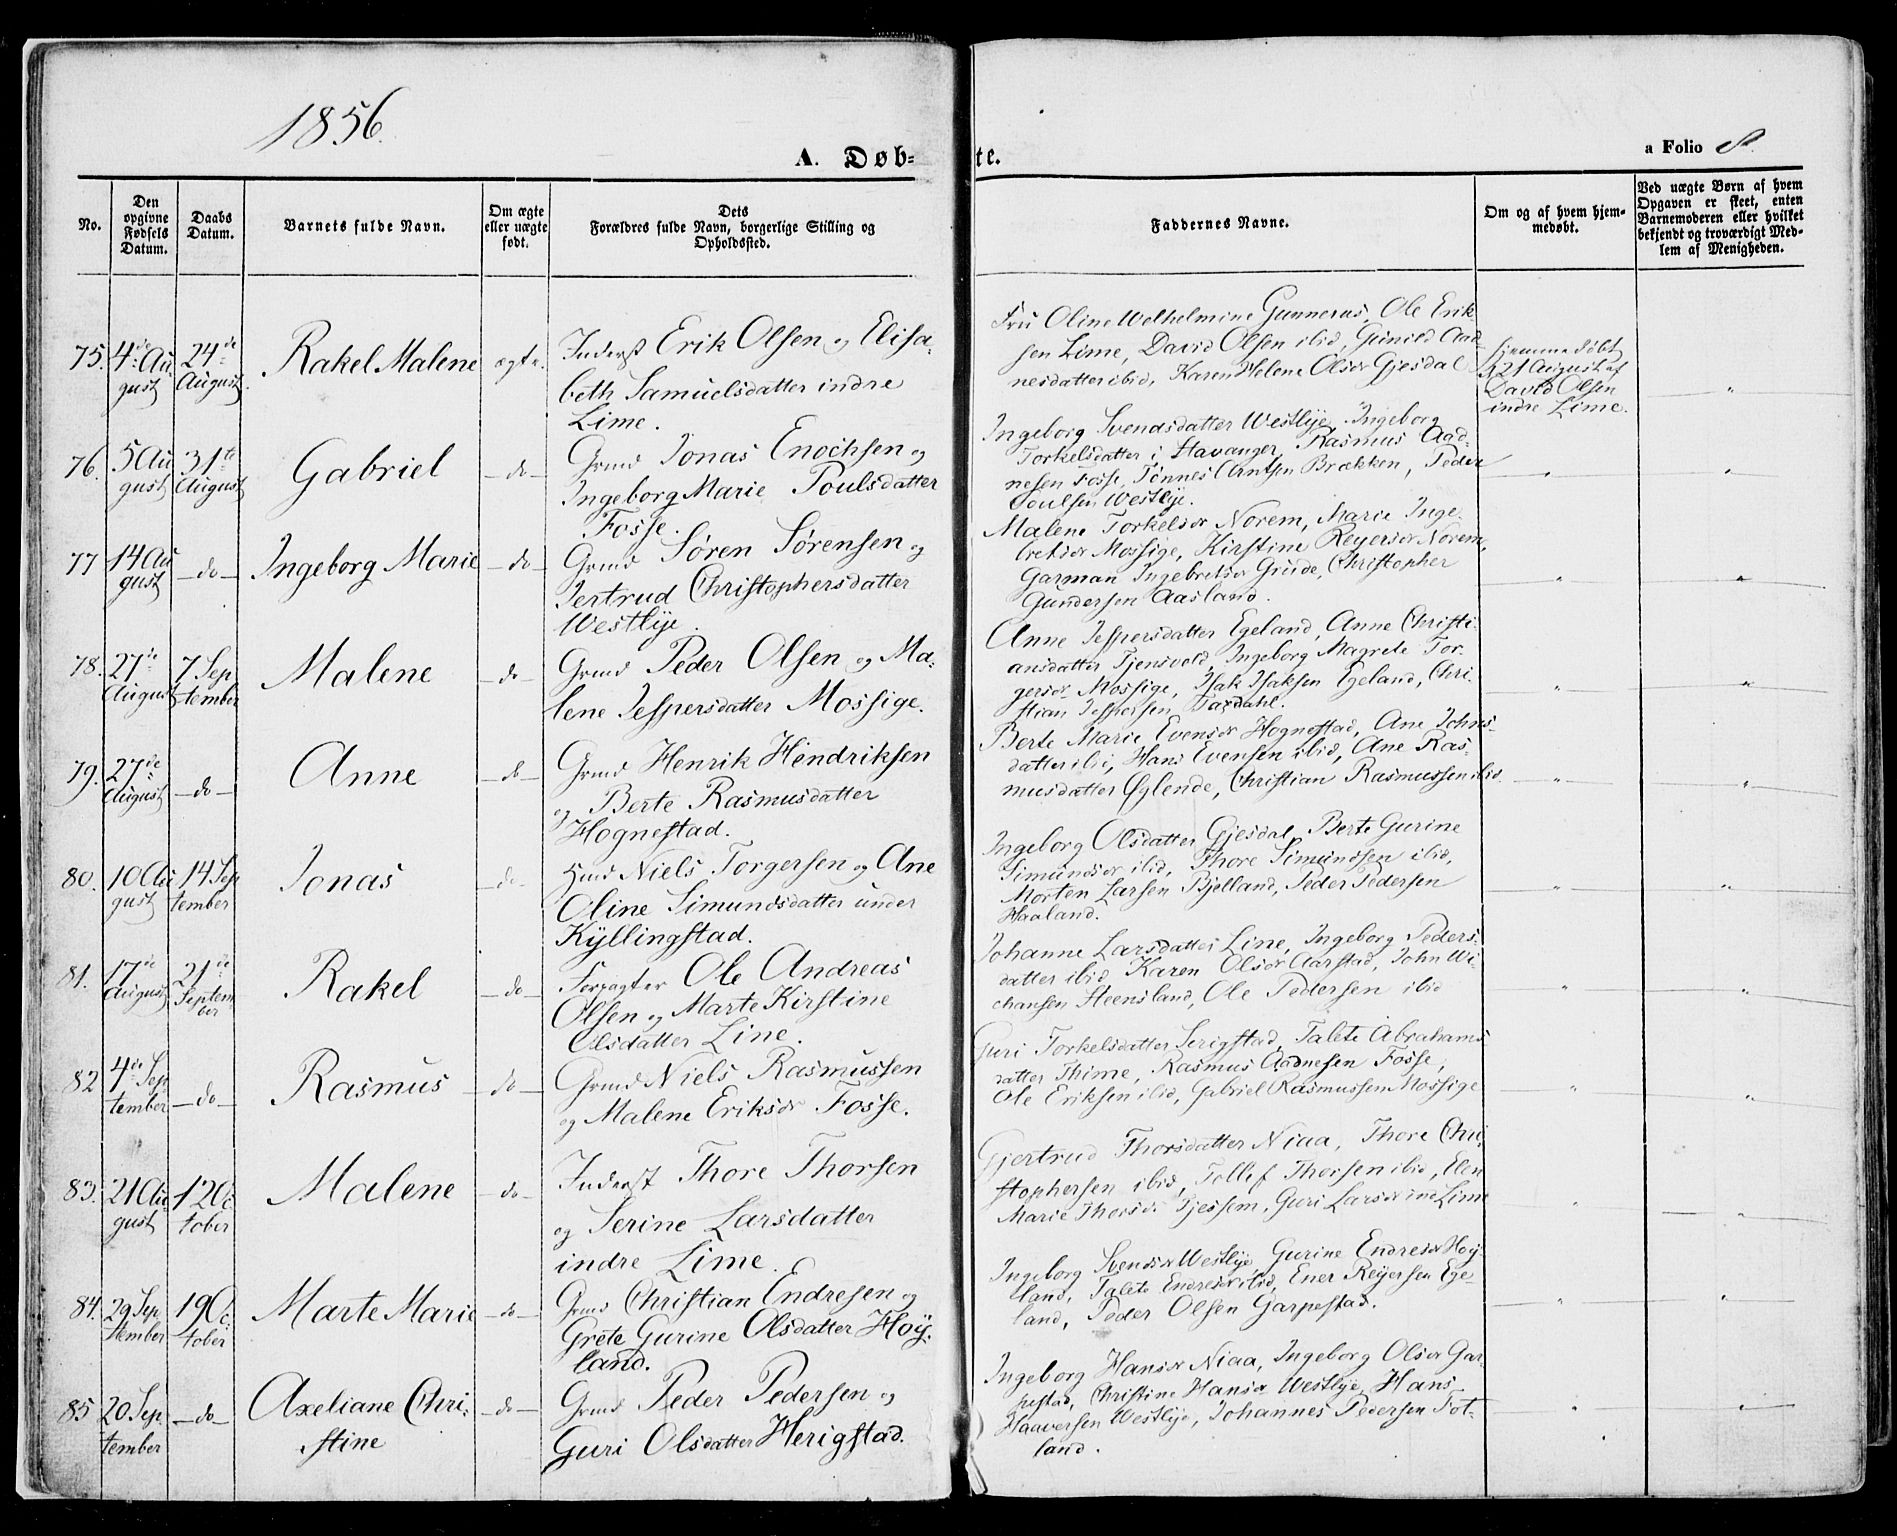 1856.
A. Døb=
te.
a Folio 8.
No.
Den opgivne Fødsels Datum.
Daabs Datum.
Barnets fulde Navn.
Om ægte eller uægte født.
Dets Forældres fulde Navn, borgerlige Stilling og Opholdssted.
Faddernes Navne.
Om og af hvem hjem-medøbt.
Ved uægte Børn af hvem Opgaven er skeet, enten Barnemoderen eller hvilket bekjendt og troværdigt Med-lem af Menigheden.
75. 4de Au
gust
24de
August.
Rakel Malene
ægte.
Inderst Erik Olsen og Elisa-
beth Samuelsdatter indre
Lime.
Fru Oline Welhelmine Gunnerus, Ole Erik
sen Lime, David Olsen ibid, Gunild Aad
nesdatter ibid, Karen Helene Olsdr Gjesdal
hjemmedøbt
d 21 August af
David Olsen
indre Lime.
"
76. 5 Au
gust
31te
August
Gabriel
- do -
Grmd Jonas Enochsen og
Ingeborg Marie Poulsdatter
Fosse.
Ingeborg Svendsdatter Westlye, Ingeborg
Torkelsdatter i Stavanger, Rasmus Aad-
nesen Fosse, Tønnes Arntsen Brækken, Peder
Poulsen Westlye.
" "
77 14 Au
gust
- do -
Ingeborg Marie
- do -
Grmd Søren Sørensen og
Jertrud Christophersdatter
Westlye.
Malene Torkelsdr Norem, Marie Inge-
bretsdr Mossige, Kirstine Reyersdr Norem,
Garman Ingebretsdr Grude, Christopher
Gundersen Aasland.
" "
78. 27de
August
7 Sep
tember
Malene
- do -
Grmd Peder Olsen og Ma-
lene Jespersdatter Mossige.
Anne Jespersdatter Egeland, Anne Christi-
ansdatter Tjensvold, Ingeborg Magrete Tor-
gersdr Mossige, Isak Isaksen Egeland, Chri-
stian Jespersen Taxdahl.
" "
79. 27de
August
- do -
Anne
- do -
Grmd Henrik Hendriksen
og Berte Rasmusdatter
Hognestad.
Berte Marie Evensdr Hognestad, Ane Johns-
datter ibi, Hans Evensen ibid, Ane Ras-
musdatter Øylende, Christian Rasmussen ibid.
" "
80. 10 Au
gust
14 Sep
tember
Jonas
- do -
Huusmd Niels Torgersen og Ane
Oline Simundsdatter under
Kyllingstad.
Ingeborg Olsdatter Gjesdal, Berte Gurine
Simundsdr ibid, Thore Simundsen ibid,
Morten Larsen Bjelland, Peder Pedersen
Haaland.
" "
81. 17de
August
21de
Septem
ber
Rakel
- do -
Forpagter Ole Andreas
Olsen og Marte Kirstine
Olsdatter Line.
Johanne Larsdatter Line, Ingeborg Peders-
datter ibid, Karen Olsdr Aarstad, John Wi-
chansen Steensland, Ole Pedersen ibid
" "
82 4de Sep
tember
- do -
Rasmus
- do -
Grmd Niels Rasmussen
og Malene Eriksdr Fosse.
Guri Torkelsdatter Serigstad, Talete Abrahams
datter Thime, Rasmus Aadnesen Fosse,
Ole Eriksen ibid, Gabriel Rasmussen Mossige
" "
83. 21 Au-
gust
12 Oc
tober
Malene
- do -
Inderst Thore Thorsen
og Serine Larsdatter
indre Lime.
Gjertrud Thorsdatter Niaa, Thore Chri
stophersen ibid, Tollef Thorsen ibid, Elen
Marie Thorsdr Tjessem, Guri Larsdr ine Lime
" "
84. 29 Sep
tember
19 Oc
tober
Marte Marie
- do -
Grmd Christian Endresen og
Grete Gurine Olsdatter Høy-
land.
Ingeborg Svensdr Westlye, Gurine Endresdr Høy-
land, Talete Endresdr ibid, Ener Reyersen Ege-
land, Peder Olsen Garpestad.
" "
85 20 Sep
tember
- do -
Axeliane Chri-
stine
- do -
Grmd Peder Pedersen og
Guri Olsdatter Herigstad.
Ingeborg Hansdr Niaa, Ingeborg Olsdr Gar-
pestad, Christine Hansdr Westlye, Hans
Haaversen Westlye, Johannes Pedersen Fot-
land.
" "